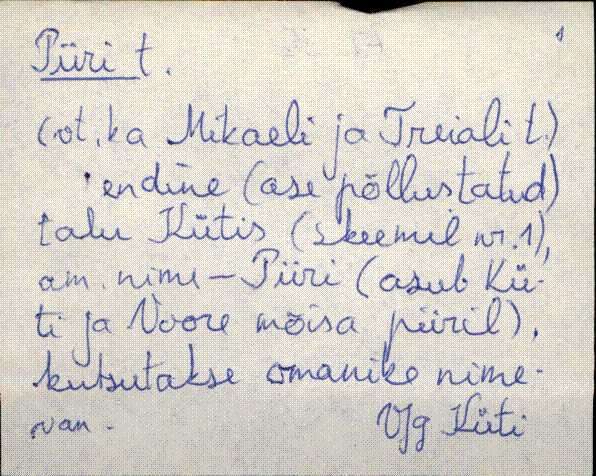 1
Piiri t.
(vt. ka Mikaeli ja Treiali t.)
endine (ase põllustatud)
talu Kütis (skeemil nr. 1),
am. nime - Piiri (asub Kü-
ti ja Voore mõisa piiril),
kutsutakse omanike nime-
VJg Küti